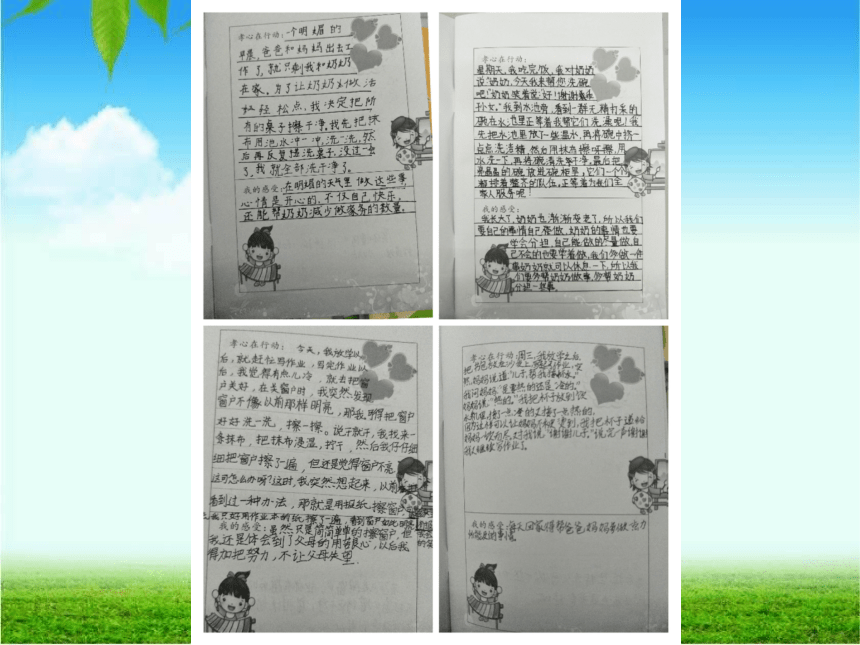 孝心在行动:一个明媚的
早晨,爸爸和妈妈出去工
作了。就只剩我和奶奶
在家。为了让奶奶做活
轻松点,我决定把所
有的桌子擦干净。我先把抹
布用泡水冲一冲,洗一洗,然
后再反复擦洗桌子,没过一会
了,我就全部洗干净了。
我的感受:在明媚的天气里做这些事,
心情是开心的,不仅自己快乐,
还能帮奶奶减少做家务的数量。
孝心在行动:
星期天,我吃完饭,我对奶奶
说:奶奶,今天我来帮你洗碗
吧!奶奶笑着说:好!谢谢
孙女。"我到水池旁,看到一群无精打采的
碗在水池里正等着我帮它们洗澡呢!我
先把水池里放了一些温水,再将碗中挤一
点点洗洁精,然后用抹布擦呀擦,用
水洗一下,再将碗清洗干净,最后把
亮晶晶的碗放进碗柜里,它们一个个
都排着整齐的队伍,正等着为我们全
家人服务呢
我的感受:
我长大了,奶奶也渐渐变老了,所以我们
要自己的事情自己做,奶奶的事情也要
学会分担,自己能做的尽量做,自
己不会的也要学着做,我们多做一件
事奶奶就可以休息一下,所以我
们要多帮奶奶做事,多帮奶奶
分担一些事。
孝心在行动: 今天,我放学以
后,就赶忙写作业,写完作业以
后,我觉得有点儿冷,就去把窗
户关好,在关窗户时,我突然发现
窗户不像以前那样明亮,那我得把窗户
好好洗一洗,擦一擦。说干就干,我找来一
条抹布,把抹布浸湿,拧干,然后我仔仔细
细把窗户擦了一遍,但还是觉得窗户不亮,
这可怎么办呢?这时,我突然想起来,以前
看到过一种办法,那就是用报纸擦窗户
我只好用作业本的纸擦了一遍,看到窗户如此明亮
我的感受:虽然只是简简单单的擦窗户,但
我还是体会到了父母的用苦良心,以后我
得加把努力,不让父母失望.
孝心在行动:周三,我放学之后,
把书包放在沙发上,突
然,妈妈说道:"儿子,帮我接杯水"
我问妈妈:"是要热的还是凉的。"
妈妈说:"热的."我把杯子放到饮
水机底,接了一点凉的又接了一点热的,
因为这样可以让妈妈不被烫到,我把杯子递给
妈妈,妈妈对我说:"谢谢儿子。"说完
我又继续写作业了。
我的感受:每天回家得帮爸爸,妈妈多做
所能及的事情